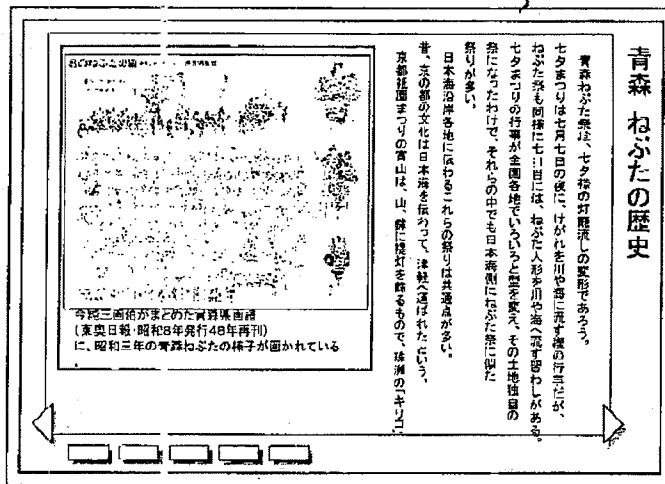 青森 ねぶたの歴史
青森ねぶた祭は、七夕様の灯籠流しの変形であろう。
七夕まつりは七月七日の夜に、けがれを川や海に流す禊の行事だが、
ねぶた祭も同様に七日目には、ねぶた人形を川や海へ流す習わしがある。
七夕まつりの行事が全国各地でいろいろと型を変え、その土地独自の
祭になったわけで、それらの中でも日本海側にねぶた祭に似た
祭りが多い。
日本海沿岸各地に伝わるこれらの祭りは共通点が多い。
昔、京の都の文化は日本海を伝わって、津軽へ運ばれたという。
京都祇園まつりの宵山は、山、鉾に提灯を飾るもので、珠洲の「キリコ」
今純三画伯がまとめた青森県画譜
(東奥日報・昭和8年発行48年再刊)
に、昭和三年の青森ねぶたの様子が画かれている